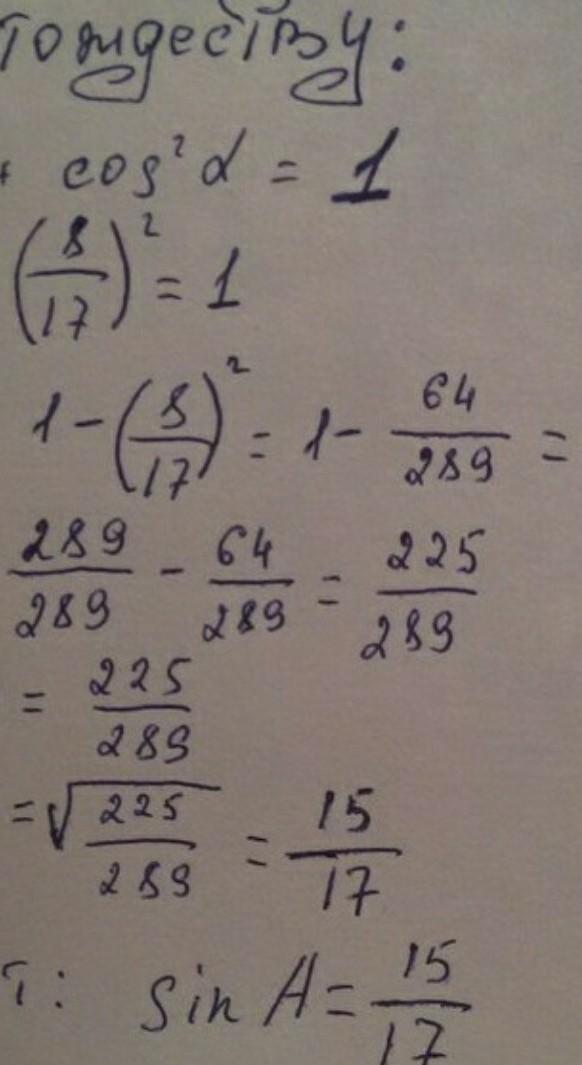 тождеству:
cos² α = 1
(8/17)² = 1
1 - (8/17)² = 1 - 64/289 =
289/289 - 64/289 = 225/289
= 225/289
= √(225/289) = 15/17
т: sin A = 15/17